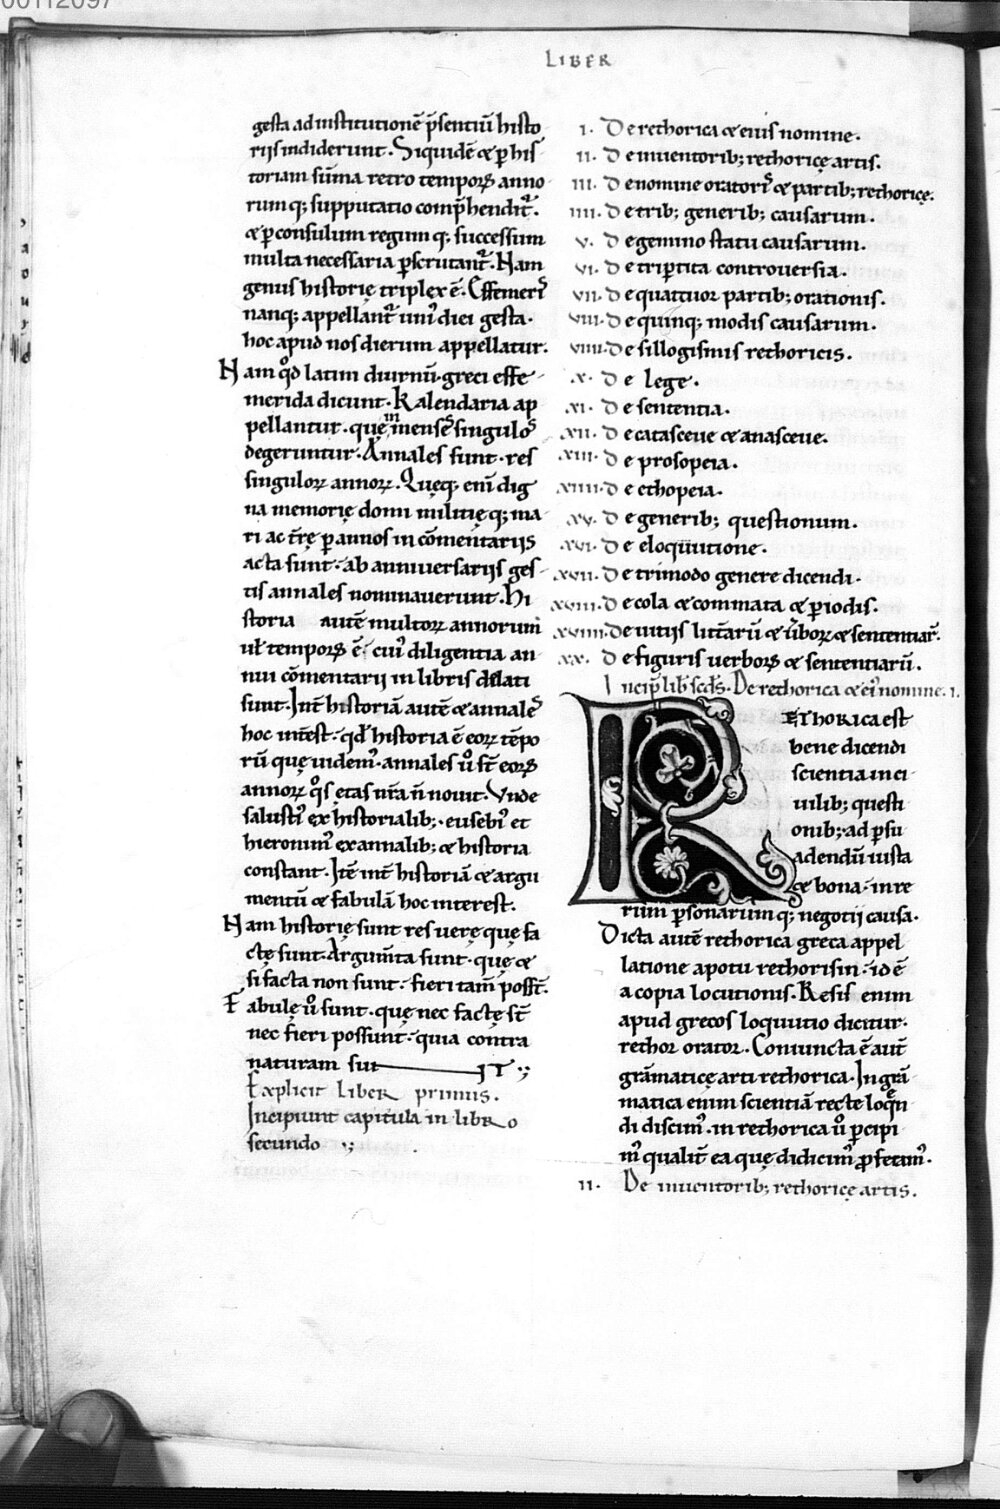 00112097
LIBER
gesta ad institutionē p̄sentiū histo
riis indiderunt. Siquidē & p his
toriam sūma retro temporꝝ anno
rum q; supputatio comp̄hendit᷑.
& p consulum regum q; successum
multa necessaria pscrutant᷑. Nam
genus historię triplex ē. Effemeris
nanq; appellant᷑ uniꝰ diei gesta.
hoc apud nos dierum appellatur.
Nam qd̓ latini diurnū. greci effe
merida dicunt. Kalendaria ap
pellantur. quę in menses singulos
degeruntur. Annales sunt. res
singuloꝝ annoꝝ. Quęq; eni dig
na memorię domi militię q; ma
ri ac t̄rę p annos in cōmentariis
acta sunt. ab anniuersariis ges
tis annales nominauerunt. Hi
storia autē multoꝝ annorum
uł temporꝝ ē. cuiꝰ diligentia an
nui cōmentarii in libris delati
sunt. Int̄ historiā autē & annales
hoc int̄est. qd̓ historia ē eoꝝ tēpo
rū quę uidemꝰ. annales ů st̄ eorꝝ
annoꝝ q̊s ętas nr̄a n̄ nouit. Vnde
salustiꝰ ex historialib;. eusebiꝰ et
hieronimꝰ ex annalib; & historia
constant. Itē int̄ historiā & argu
mentū & fabulā hoc interest.
Nam historię sunt res uerę quę fa
ctę sunt. Argum̄ta sunt. quę &
si facta non sunt. fieri tam̄ posst̄.
Fabulę ů sunt. quę nec factę st̄
nec fieri possunt. quia contra
naturam sunt
Explicit Liber primus.
Incipiunt capitula in libro
secundo
I. De rethorica & eius nomine.
II. De inuentorib; rethoricę artis.
III. De nomine oratoris & partib; rethoricę.
IIII. De trib; generib; causarum.
V. De gemino statu causarum.
VI. De trip̄tita controuersia.
VII. De quattuor partib; orationis.
VIII. De quinq; modis causarum.
VIIII. De sillogismis rethoricis.
X. De lege.
XI. De sententia.
XII. De catasceue & anasceue.
XIII. De prosopeia.
XIIII. De ethopeia.
XV. De generib; questionum.
XVI. De eloquutione.
XVII. De trimodo genere dicendi.
XVIII. De cola & commata & piodis.
XVIIII. De uitiis litt̄arū & ůboꝝ & sententiar᷑.
XX. De figuris uerborꝝ & sententiarū.
Incip̄ lib̄ scds̄. De rethorica & eiꝰ nomine. I.
REThORICA est
bene dicendi
scientia in ci
uilib; questi
onib; ad psu
adendū iusta
& bona. in re
rum psonarum q; negotii causa.
Dicta autē rethorica greca appel
latione apotu rethorisin. id ē
a copia locutionis. Resis enim
apud grecos loquutio dicitur.
rethor orator. Coniuncta ē aut̄
grāmaticę arti rethorica. In grā
matica enim scientiā recte loq̄n
di discimꝰ. in rethorica ů pcipi
mꝰ qualit̄ ea quę didicimꝰ pferamꝰ.
II. De inuentorib; rethoricę artis.